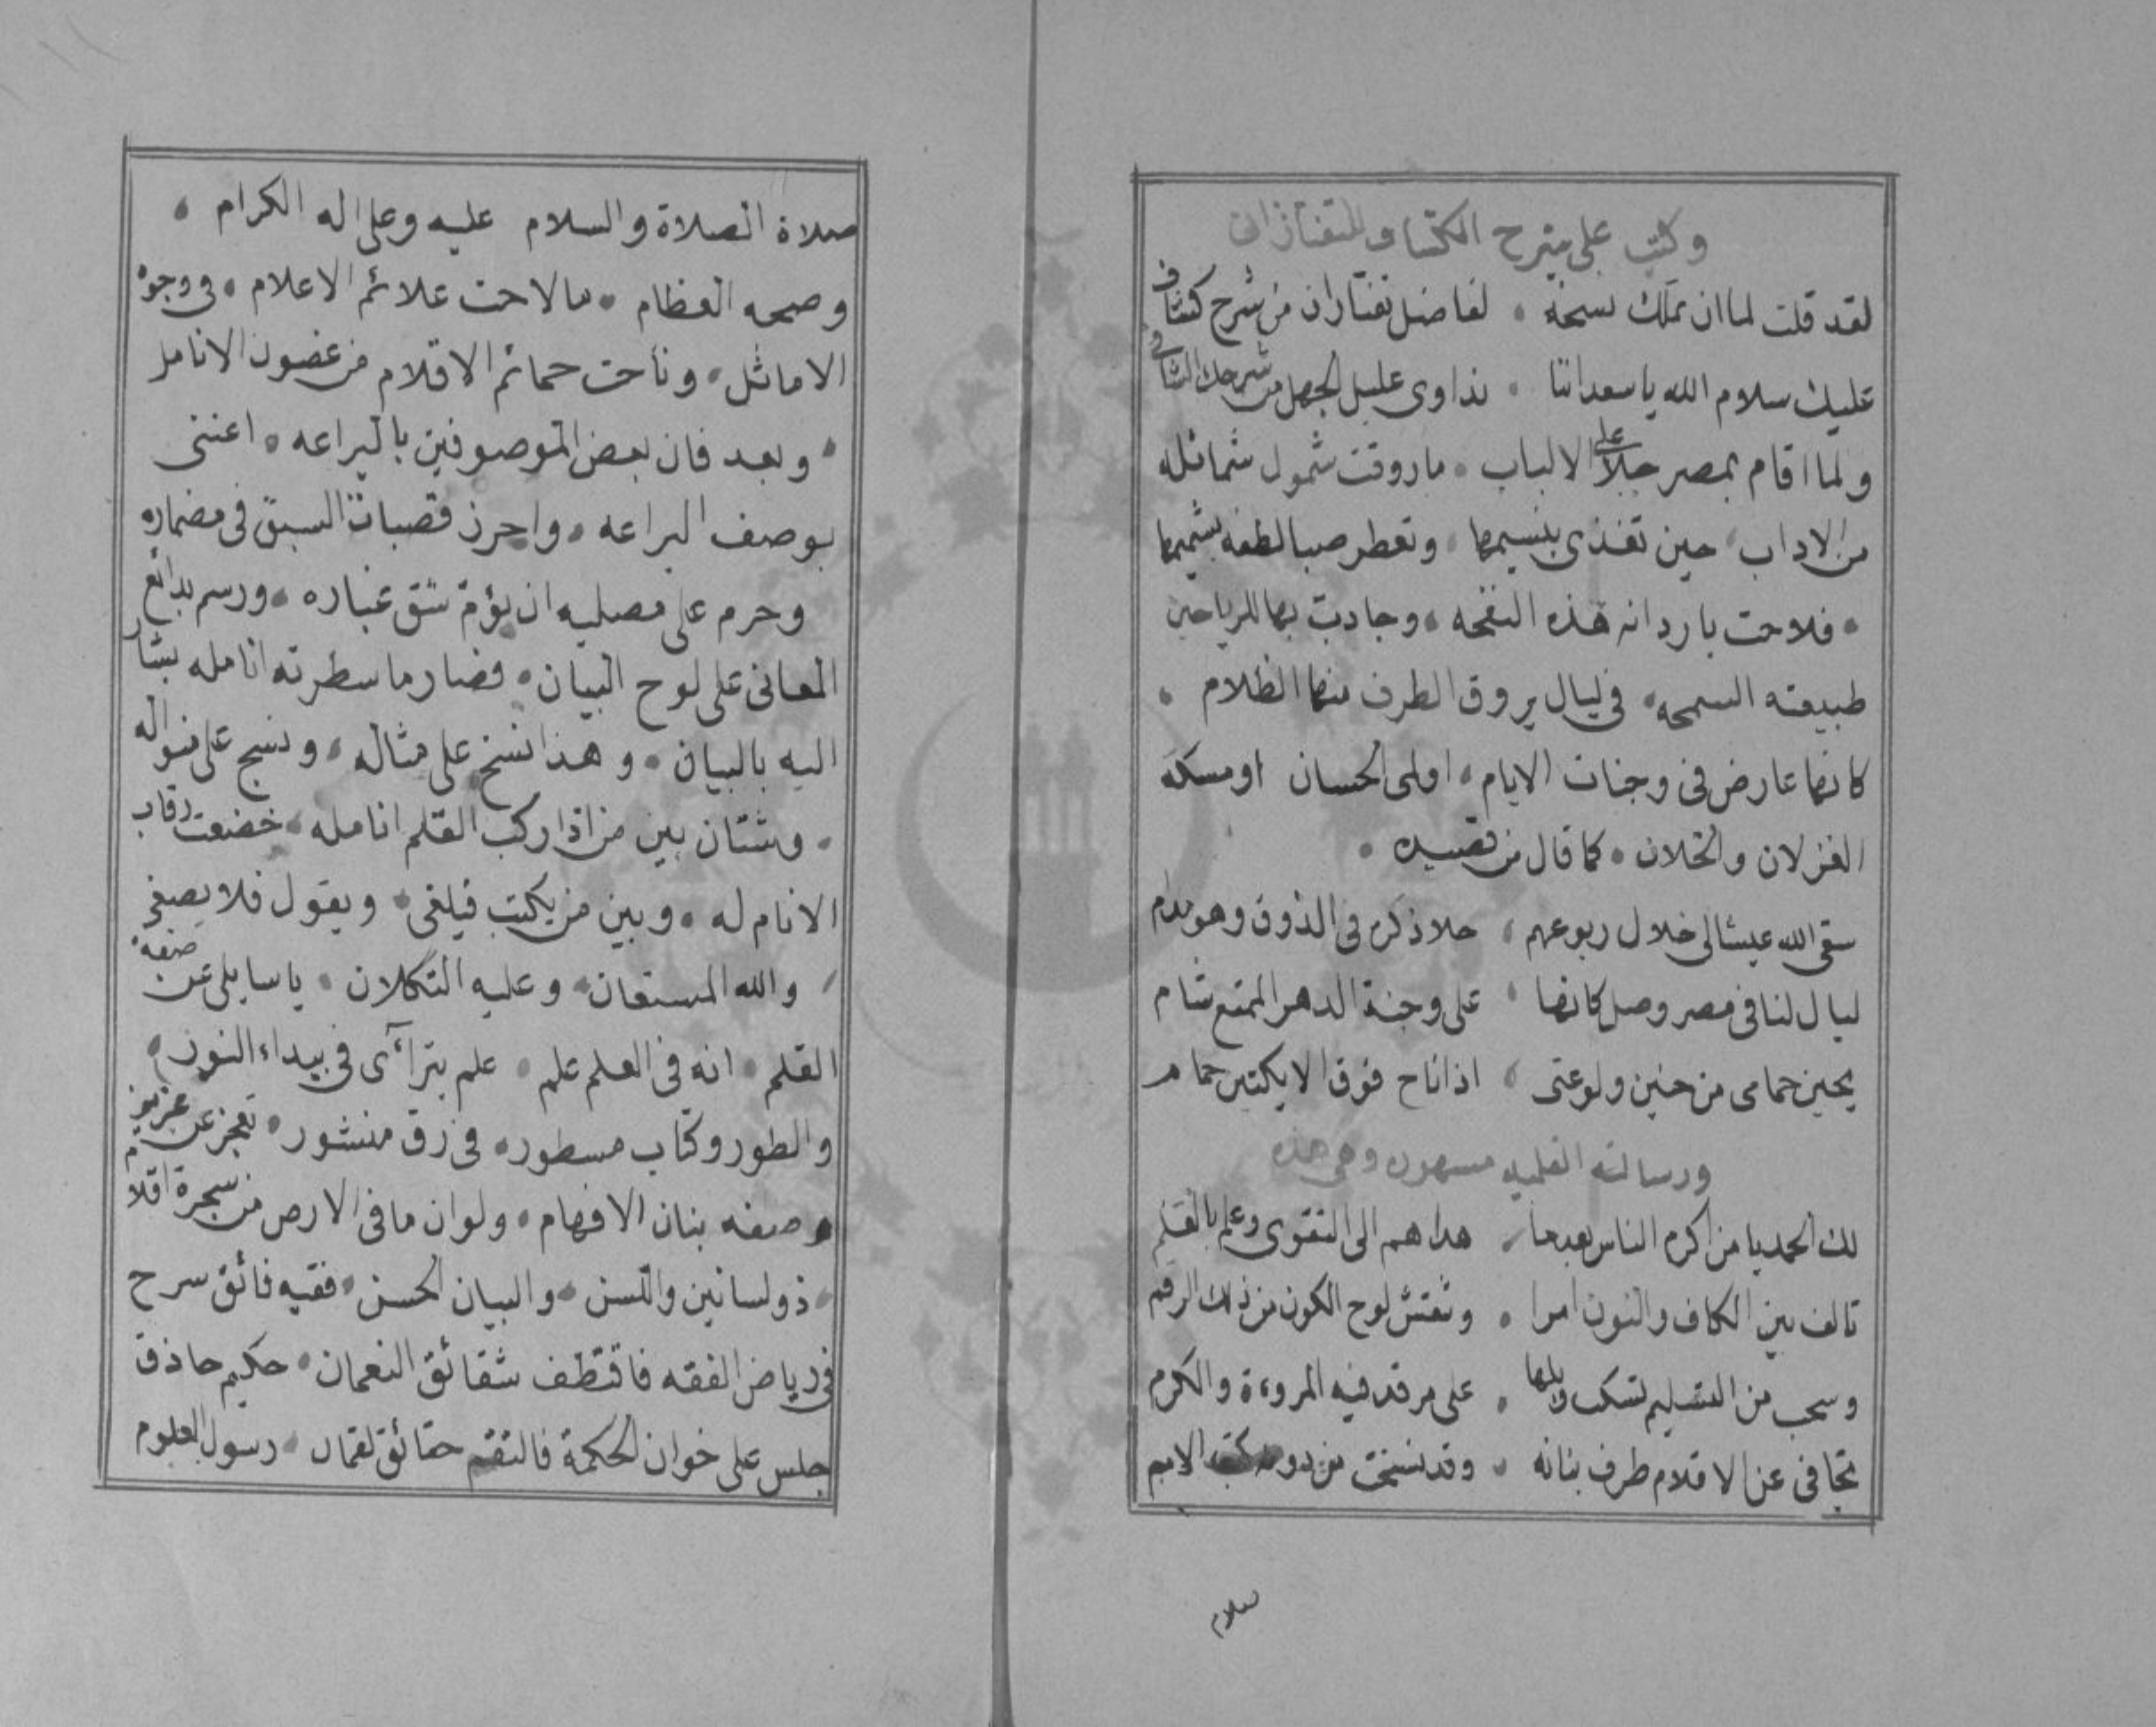 وكتب على شرح الكشاف للتفتازاني
لقد قلت لما ان تملك نسخة • لفاضل تفتازان من شرح كشاف
عليك سلام الله يا سعد اننا • نداوى عليل الجهل من شرحك الشافى
ولما اقام بمصر جلا على الالباب • ما روقت شمول شمائله
من الاداب • حين تغذى بنسيمها • وتعطر صبا لطفه بشميمها
• فلاحت باردانه هذه النفحه • وجادت بها للرياحين
طبيعته السمحه • فى ليال يروق الطرف منها الظلام •
كانها عارض فى وجنات الايام • اولمى الحسان او مسكة
الغزلان والخلان • كما قال من قصيده •
سقى الله عيشا لى خلال ربوعهم • حلا ذكره فى الذوق وهو مدام
ليال لنا فى مصر وصل كانها • على وجنة الدهر الممتع شام
يحين حمامى من حنين ولوعتى • اذا ناح فوق الايكتين حمام
ورسالته القلميه مشهوره وهى هذه
لك الحمد يا من اكرم الناس بعدما • هداهم الى التقوى وعلم بالقلم
تالف بين الكاف والنون امرا • ونقش لوح الكون من ذلك الرقم
وسحب من التسليم تسكب وبلها • على مرقد فيه المروءة والكرم
تجافى عن الاقلام طرف بنانه • وقد نسخت من كتب الامم
سلام
صلاة الصلاة والسلام عليه وعلى اله الكرام •
وصحبه العظام • ما لاحت علائم الاعلام • فى وجوه
الاماثل • وناحت حمائم الاقلام من غصون الانامل
• وبعد فان بعض الموصوفين باليراعه • اعتنى
بوصف اليراعه • واحرز قصبات السبق فى مضماره
وحرم على مصليه ان يؤم شق غباره • ورسم بدائع
المعانى على لوح البيان • فصار ما سطرته انامله يشار
اليه بالبيان • وهذا نسخ على مثاله • ونسج على منواله
• وشتان بين من اذا ركب القلم انامله • خضعت رقاب
الانام له • وبين من يكتب فيلغى • ويقول فلا يصغى
• والله المستعان • وعليه التكلان • يا سايلى عن صفة
القلم • انه فى العلم علم • علم يترآءى فى بيداء النون •
والطور وكتاب مسطور • فى رق منشور • تعجز عن عزيز
وصفه بنان الافهام • ولو ان ما فى الارض من شجرة اقلام
• ذو لسانين واللسن • والبيان الحسن • فقيه فائق سرح
فى رياض الفقه فاقتطف شقائق النعمان • حكيم حاذق
جلس على خوان الحكمة فالتقم حقائق لقمان • رسول العلوم